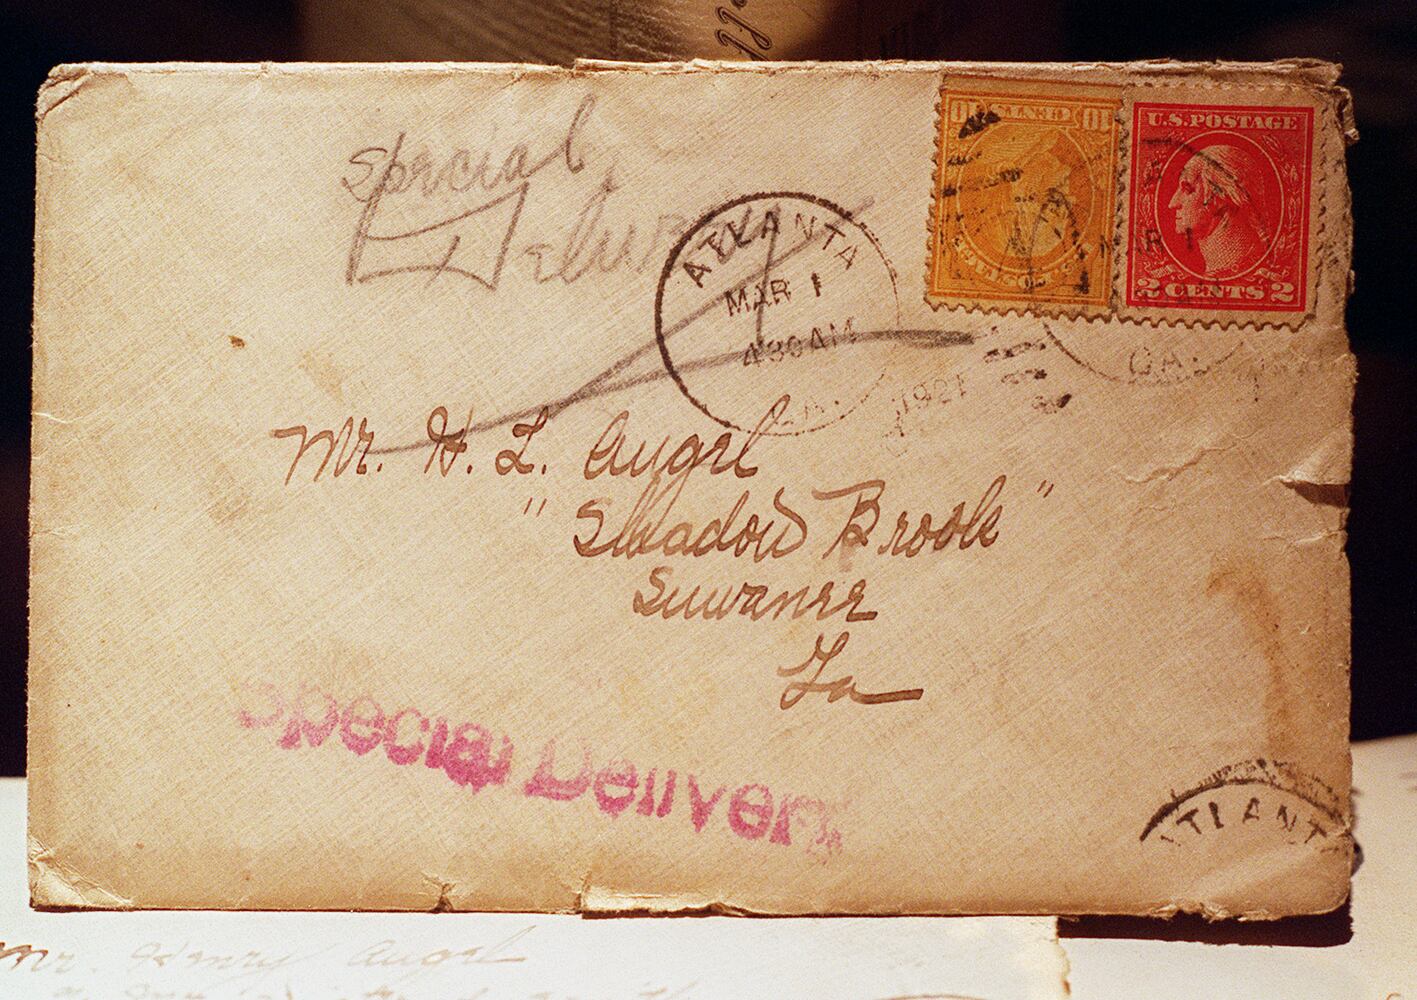 Special
Delivery
10 CENTS 10
U.S. POSTAGE
2 CENTS 2
ATLANTA
MAR 1
4 30 AM
GA.
1921
MAR 1
GA.
Mr. H. L. Angel
"Shadow Brook"
Suwanee
Ga
Special Delivery
ATLANT
Mr. Henry Angel